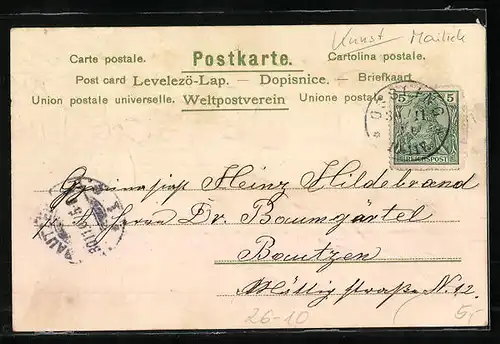 Kunst Mailick
Carte postale. Postkarte. Cartolina postale.
Post card Levelezö-Lap. — Dopisnice. — Briefkaart
Union postale universelle. Weltpostverein Unione postale
5 5
REICHSPOST
Heinz Hildebrand
Dr. Baumgärtel
Bautzen
straße N. 12.
26-10
5,-